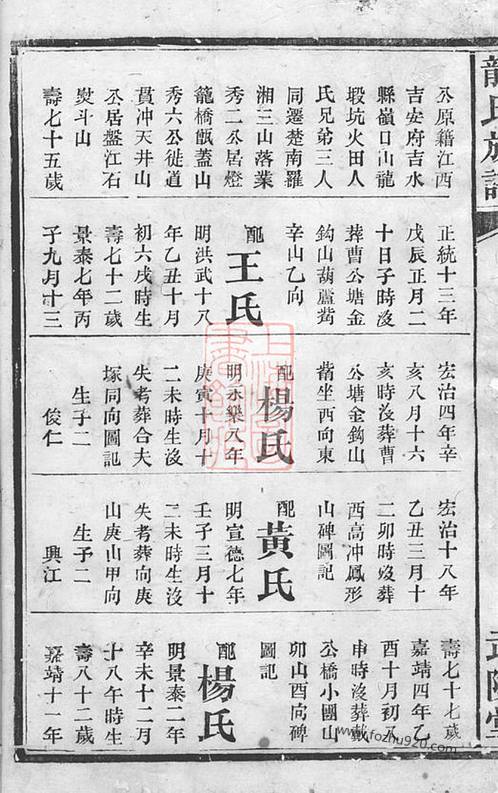 龍氏族譜
公原籍江西
吉安府吉水
縣嶺口山龍
塅坑火田人
氏兄弟三人
同遷楚南羅
湘三山落業
秀二公居燈
籠橋甑蓋山
秀六公徙道
貫冲天井山
公居盤江石
熨斗山
壽七十五歲
正統十三年
戊辰正月二
十日子時沒
葬曹公塘金
鈎山葫蘆嘴
辛山乙向
配
王氏
明洪武十八
年乙丑十月
初六戌時生
壽七十二歲
景泰七年丙
子九月十三
宏治四年辛
亥八月十六
亥時沒葬曹
公塘金鈎山
嘴坐西向東
配
楊氏
明永樂八年
庚寅十月十
二未時生沒
失考葬合夫
塚同向圖記
生子二
俊仁
宏治十八年
乙丑三月十
二卯時歿葬
西高冲鳳形
山碑圖記
配
黃氏
明宣德七年
壬子三月十
二未時生沒
失考葬向庚
山庚山甲向
生子二
興江
壽七十七歲
嘉靖四年乙
酉十月初八
申時沒葬戴
公橋小團山
卯山酉向碑
圖記
配
楊氏
明景泰二年
辛未十二月
十八年時生
壽八十二歲
嘉靖十一年
武陵堂
www.fozhu920.com